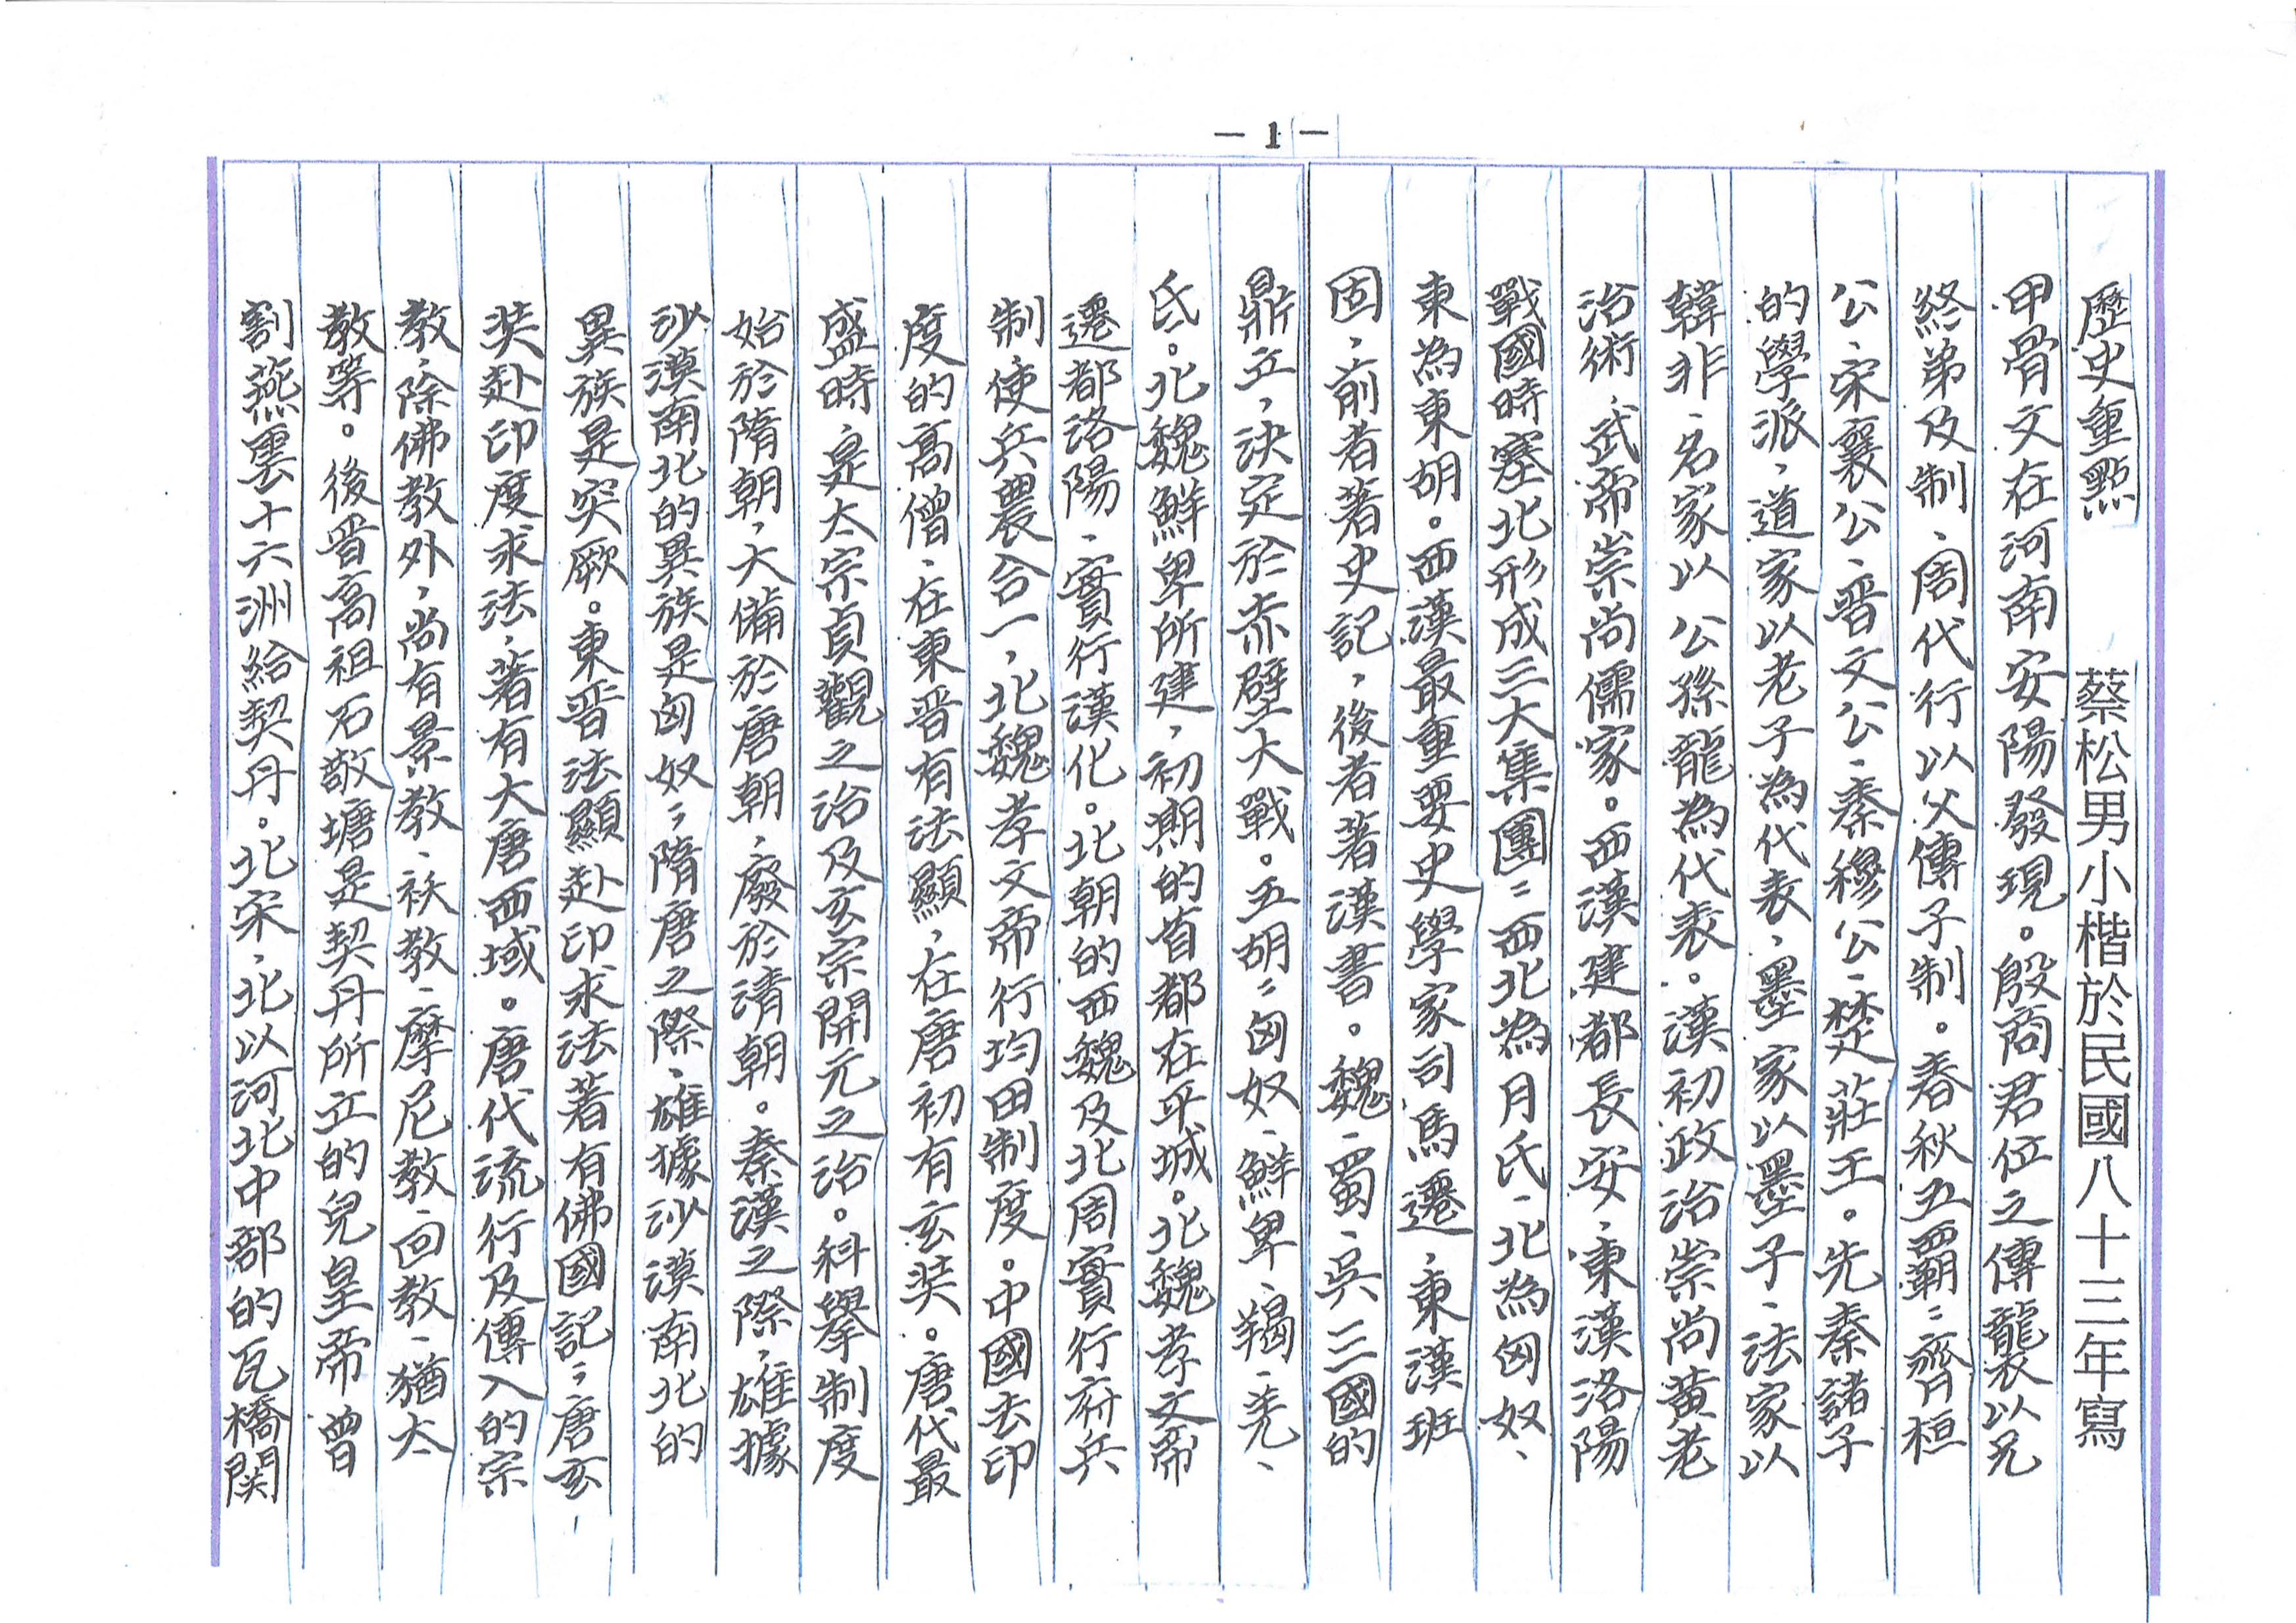 — 1 —
歷史重點　蔡松男小楷於民國八十三年寫
甲骨文在河南安陽發現。殷商君位之傳襲以兄
終弟及制、周代行以父傳子制。春秋五霸：齊桓
公、宋襄公、晋文公、秦穆公、楚莊王。先秦諸子
的學派，道家以老子為代表、墨家以墨子、法家以
韓非、名家以公孫龍為代表。漢初政治崇尚黃老
治術，武帝崇尚儒家。西漢建都長安、東漢洛陽
戰國時塞北形成三大集團：西北為月氏、北為匈奴、
東為東胡。西漢最重要史學家司馬遷、東漢班
固，前者著史記，後者著漢書。魏、蜀、吳三國的
鼎立，決定於赤壁大戰。五胡：匈奴、鮮卑、羯、羌、
氐。北魏鮮卑所建，初期的首都在平城。北魏孝文帝
遷都洛陽、實行漢化。北朝的西魏及北周實行府兵
制，使兵農合一，北魏孝文帝行均田制度。中國去印
度的高僧，在東晋有法顯，在唐初有玄奘。唐代最
盛時，是太宗貞觀之治及玄宗開元之治。科舉制度
始於隋朝，大備於唐朝，廢於清朝。秦漢之際，雄據
沙漠南北的異族是匈奴；隋唐之際，雄據沙漠南北的
異族是突厥。東晉法顯赴印求法著有佛國記；唐玄
奘赴印度求法，著有大唐西域。唐代流行及傳入的宗
教，除佛教外，尚有景教、祆教、摩尼教、回教、猶太
教等。後晋高祖石敬塘是契丹所立的兒皇帝曾
割燕雲十六洲給契丹。北宋，北以河北中部的瓦橋関